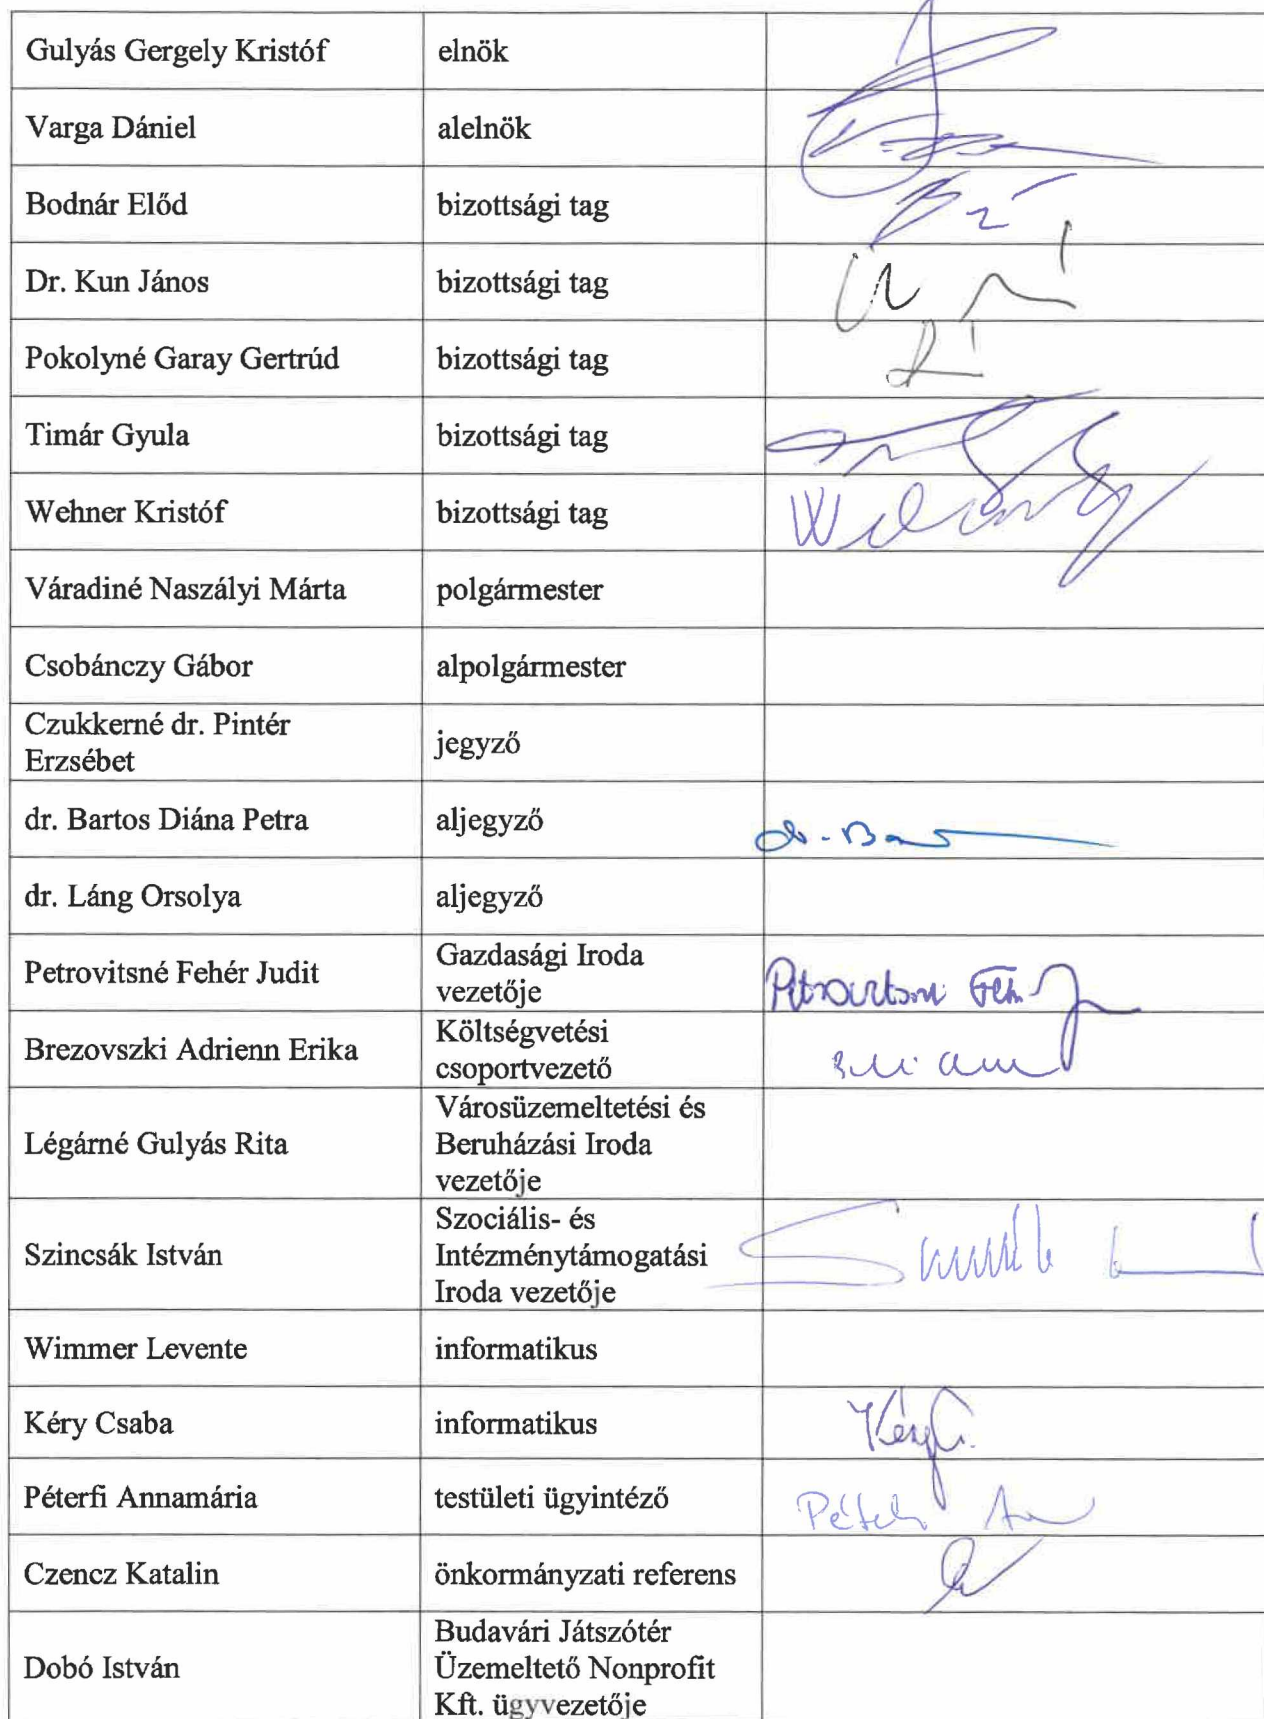 Gulyás Gergely Kristóf elnök
Varga Dániel alelnök
Bodnár Előd bizottsági tag
Dr. Kun János bizottsági tag
Pokolyné Garay Gertrúd bizottsági tag
Timár Gyula bizottsági tag
Wehner Kristóf bizottsági tag
Váradiné Naszályi Márta polgármester
Csobánczy Gábor alpolgármester
Czukkerné dr. Pintér
Erzsébet
jegyző
dr. Bartos Diána Petra aljegyző
dr. Láng Orsolya aljegyző
Petrovitsné Fehér Judit
Gazdasági Iroda
vezetője
Brezovszki Adrienn Erika
Költségvetési
csoportvezető
Légárné Gulyás Rita
Városüzemeltetési és
Beruházási Iroda
vezetője
Szincsák István
Szociális- és
Intézménytámogatási
Iroda vezetője
Wimmer Levente informatikus
Kéry Csaba informatikus
Péterfi Annamária testületi ügyintéző
Czencz Katalin önkormányzati referens
Dobó István
Budavári Játszótér
Üzemeltető Nonprofit
Kft. ügyvezetője